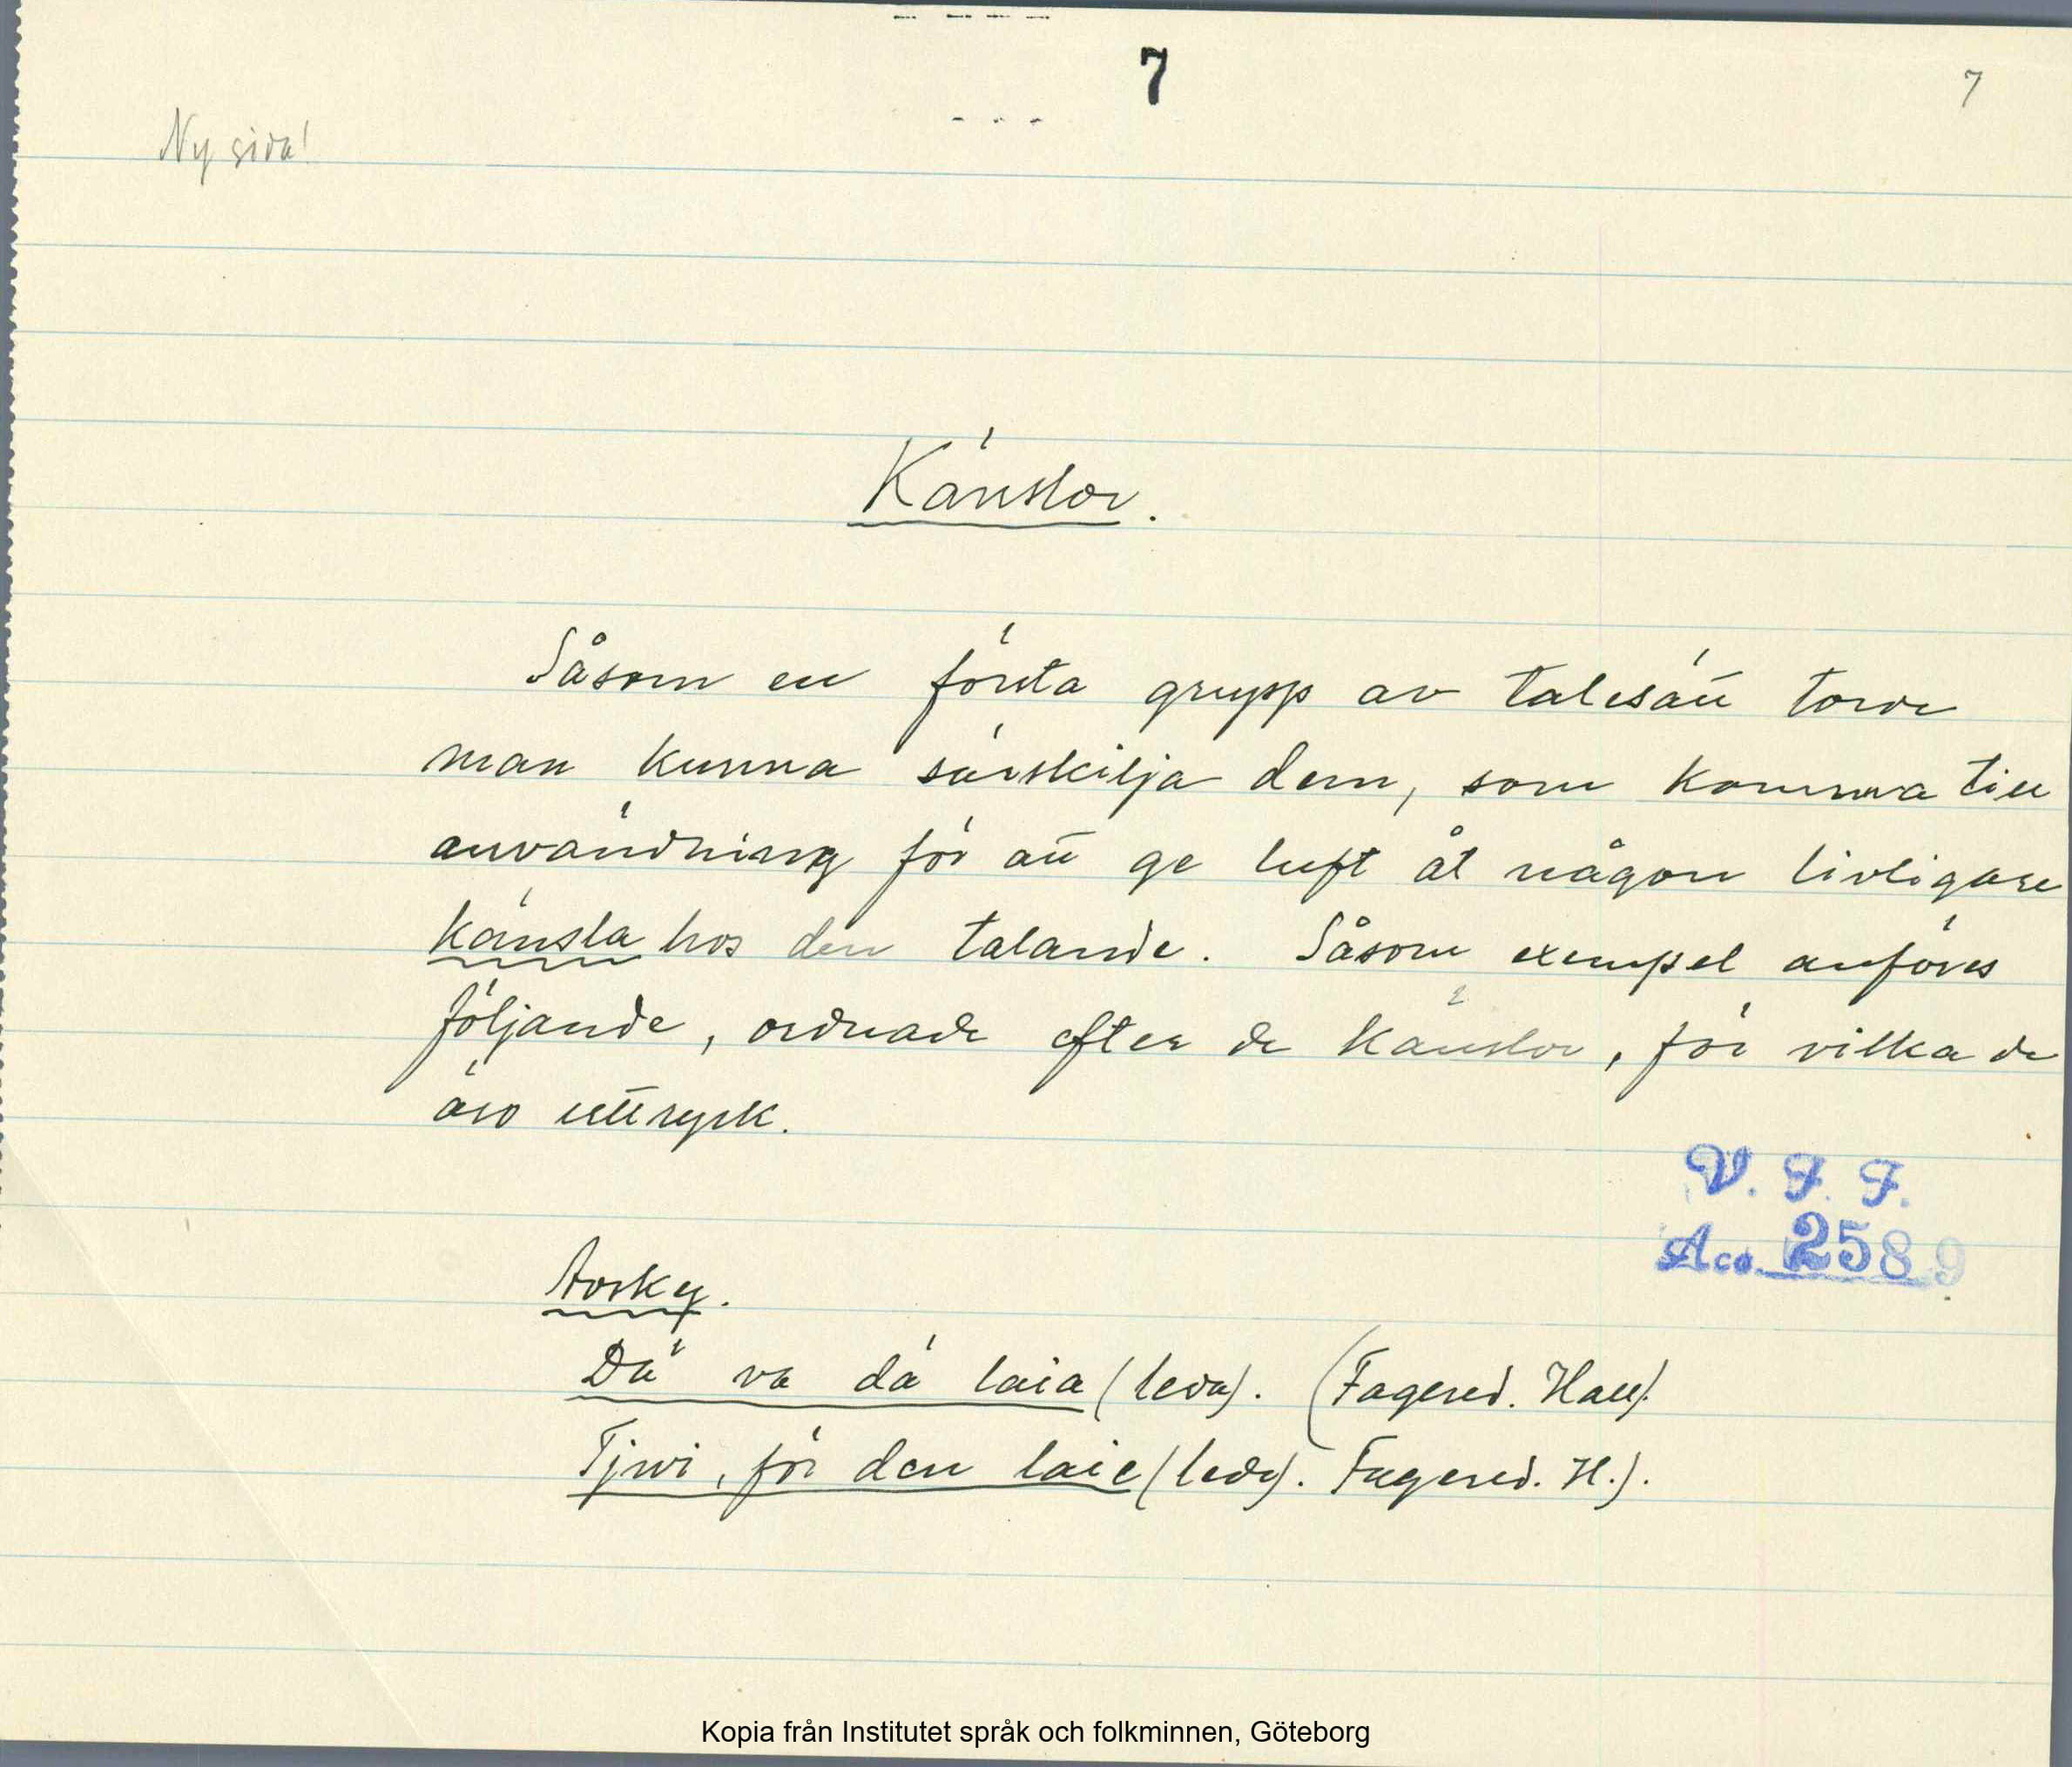 7
7
Ny sida!
Känslor.
Såsom en första grupp av talesätt torde
man kunna särskilja dem, som komma till
användning för att ge luft åt någon livligare
känsla hos den talande. Såsom exempel anföres
följande, ordnade efter de känslor, för vilka de
äro uttryck.
V. F. F.
Acc. 2589
Avsky.
Dä va dä laia (leda). (Fagered. Hall).
Tjwi, för den laie (lede). Fagered. H.).
Kopia från Institutet språk och folkminnen, Göteborg